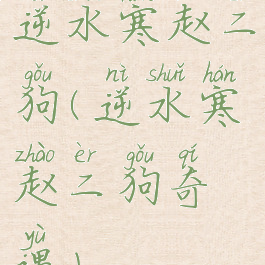 逆水寒赵二
gǒu nì shuǐ hán
狗(逆水寒
zhào èr gǒu qí
赵二狗奇
yù
遇)